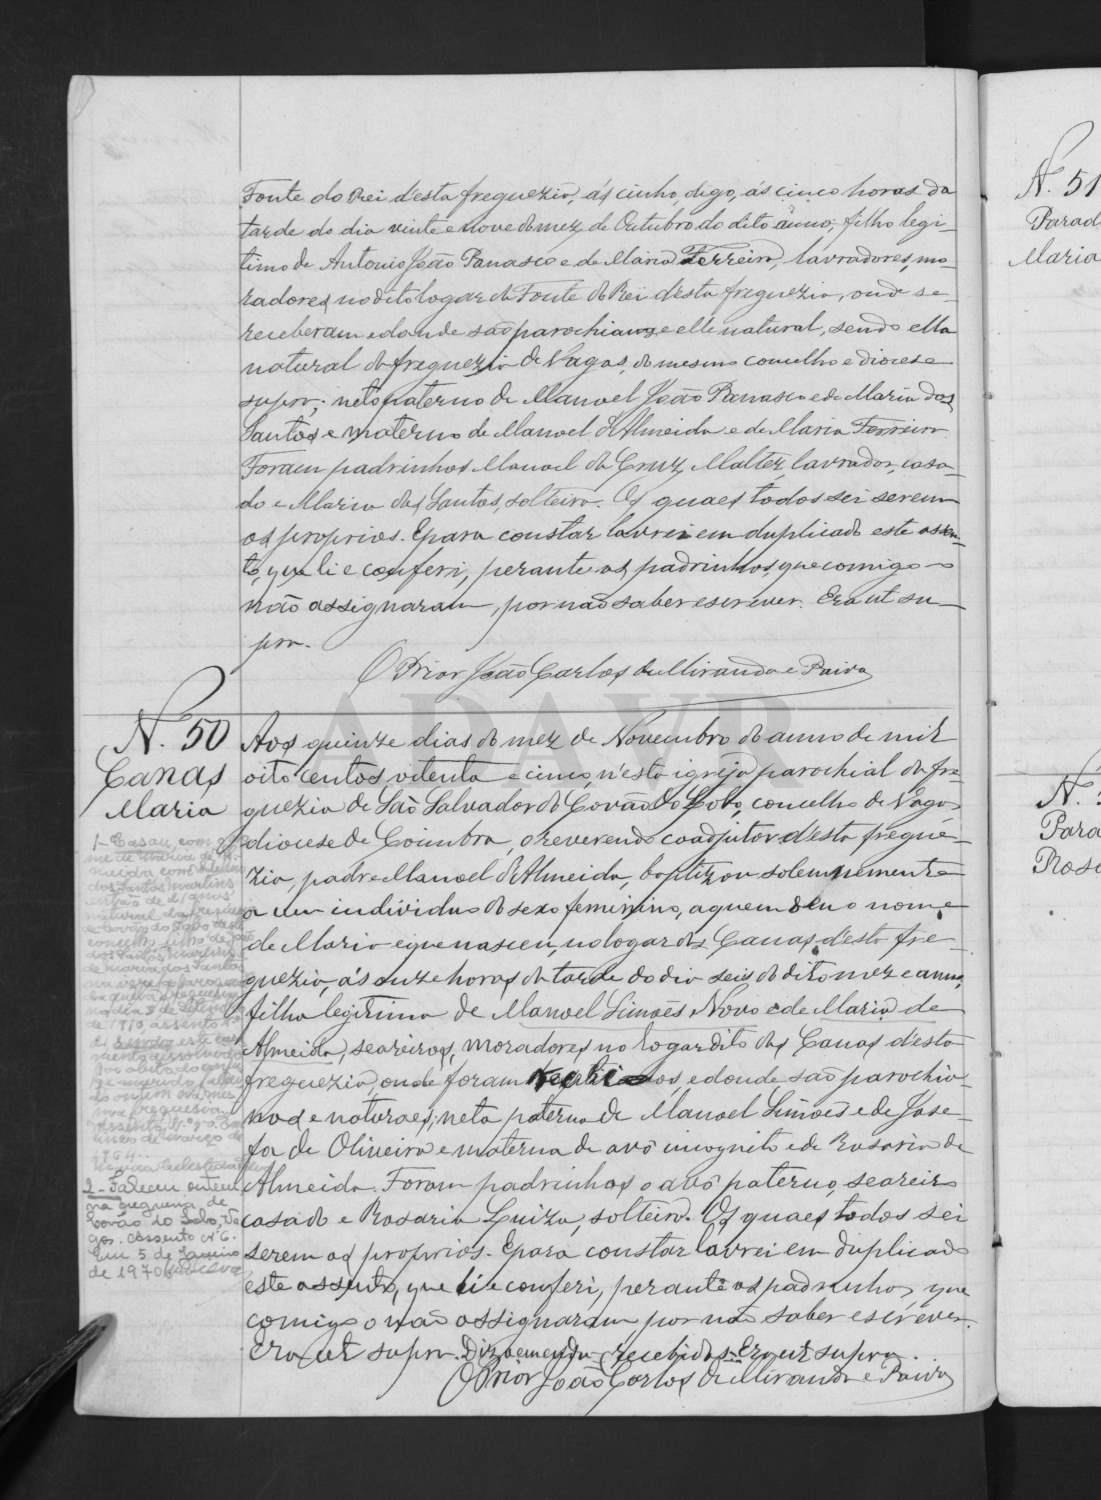 Fonte do Rei d'esta freguezia, ás cinho, digo, ás cinco horas da
tarde do dia vinte e nove do mez de Outubro do dito anno, filho legi-
timo de Antonio João Panasco e de Maria Ferreira, lavradores, mo-
radores no dito logar da Fonte do Rei d'esta freguezia, onde se
receberam e donde são parochianos e elle natural, sendo ella
natural da freguezia de Vagos, do mesmo concelho e diocese
supra; neto paterno de Manoel João Panasco e de Maria dos
Santos e materno de Manoel d'Almeida e de Maria Ferreira.
Foram padrinhos Manoel da Cruz Maltez, lavrador, casa-
do e Maria dos Santos, solteira. Os quaes todos sei serem
os proprios. E para constar lavrei em duplicado este assen-
to, que li e conferi, perante os padrinhos, que comigo
não assignaram, por não saber escrever. Era ut su-
pra.
O Prior João Carlos de Miranda e Paiva
N. 50
Canas
Maria
Aos quinze dias do mez de Novembro do anno de mil
oito centos oitenta e cinco, n'esta igreja parochial da fre-
guezia de São Salvador do Covão do Lobo, concelho de Vagos
diocese de Coimbra, o reverendo coadjutor d'esta fregue-
zia, padre Manoel d'Almeida, baptizou solemnemente
a um individuo do sexo feminino, a quem deu o nome
de Maria e que nasceu, no logar das Canas d'esta fre-
guezia, ás onze horas da tarde do dia seis do dito mez e anno,
filha legitima de Manoel Simões Novo e de Maria de
Almeida, seareiros, moradores no logar dito das Canas d'esta
freguezia, onde foram recebidos, e donde são parochia-
nos e naturaes; neta paterna de Manoel Simões e de Jose-
fa de Oliveira e materna de avô incognito e de Rosaria de
Almeida. Foram padrinhos o avô paterno, seareiro
casado e Rosaria Luiza, solteira. Os quaes todos sei
serem os proprios. E para constar lavrei em duplicado
este assento, que li e conferi, perante os padrinhos, que
comigo o não assignaram por não saber escrever.
Era ut supra. Diz a emenda, recebidos. Era ut supra.
O Prior João Carlos de Miranda e Paiva
1- Casou com
dos Santos Martins
natural da freguesia
de Covão do Lobo
concelho
dos Santos
de Maria dos Santos
de 1910 assento
freguesia
1964
2- Faleceu ontem
na freguesia de
Covão do Lobo, Va-
gos. Assento nº 6.
Em 5 de Janeiro
de 1970
N. 51
Parad
Maria
N.
Para
Rosa
ADAVR